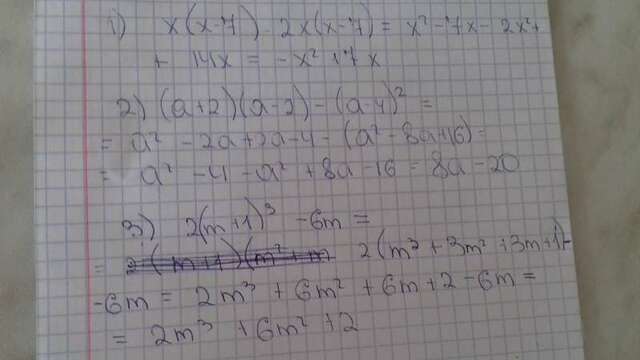 1) x(x-7) - 2x(x-7) = x²-7x - 2x²+
+ 14x = -x²+7x
2) (a+2)(a-2) - (a-4)² =
= a² - 2a+2a-4 - (a² - 8a+16) =
= a² - 4 - a² + 8a - 16 = 8a - 20
3) 2(m+1)³ - 6m =
= 2(m³+3m²+3m+1)-
-6m = 2m³ + 6m² + 6m+2 -6m =
= 2m³ + 6m² + 2